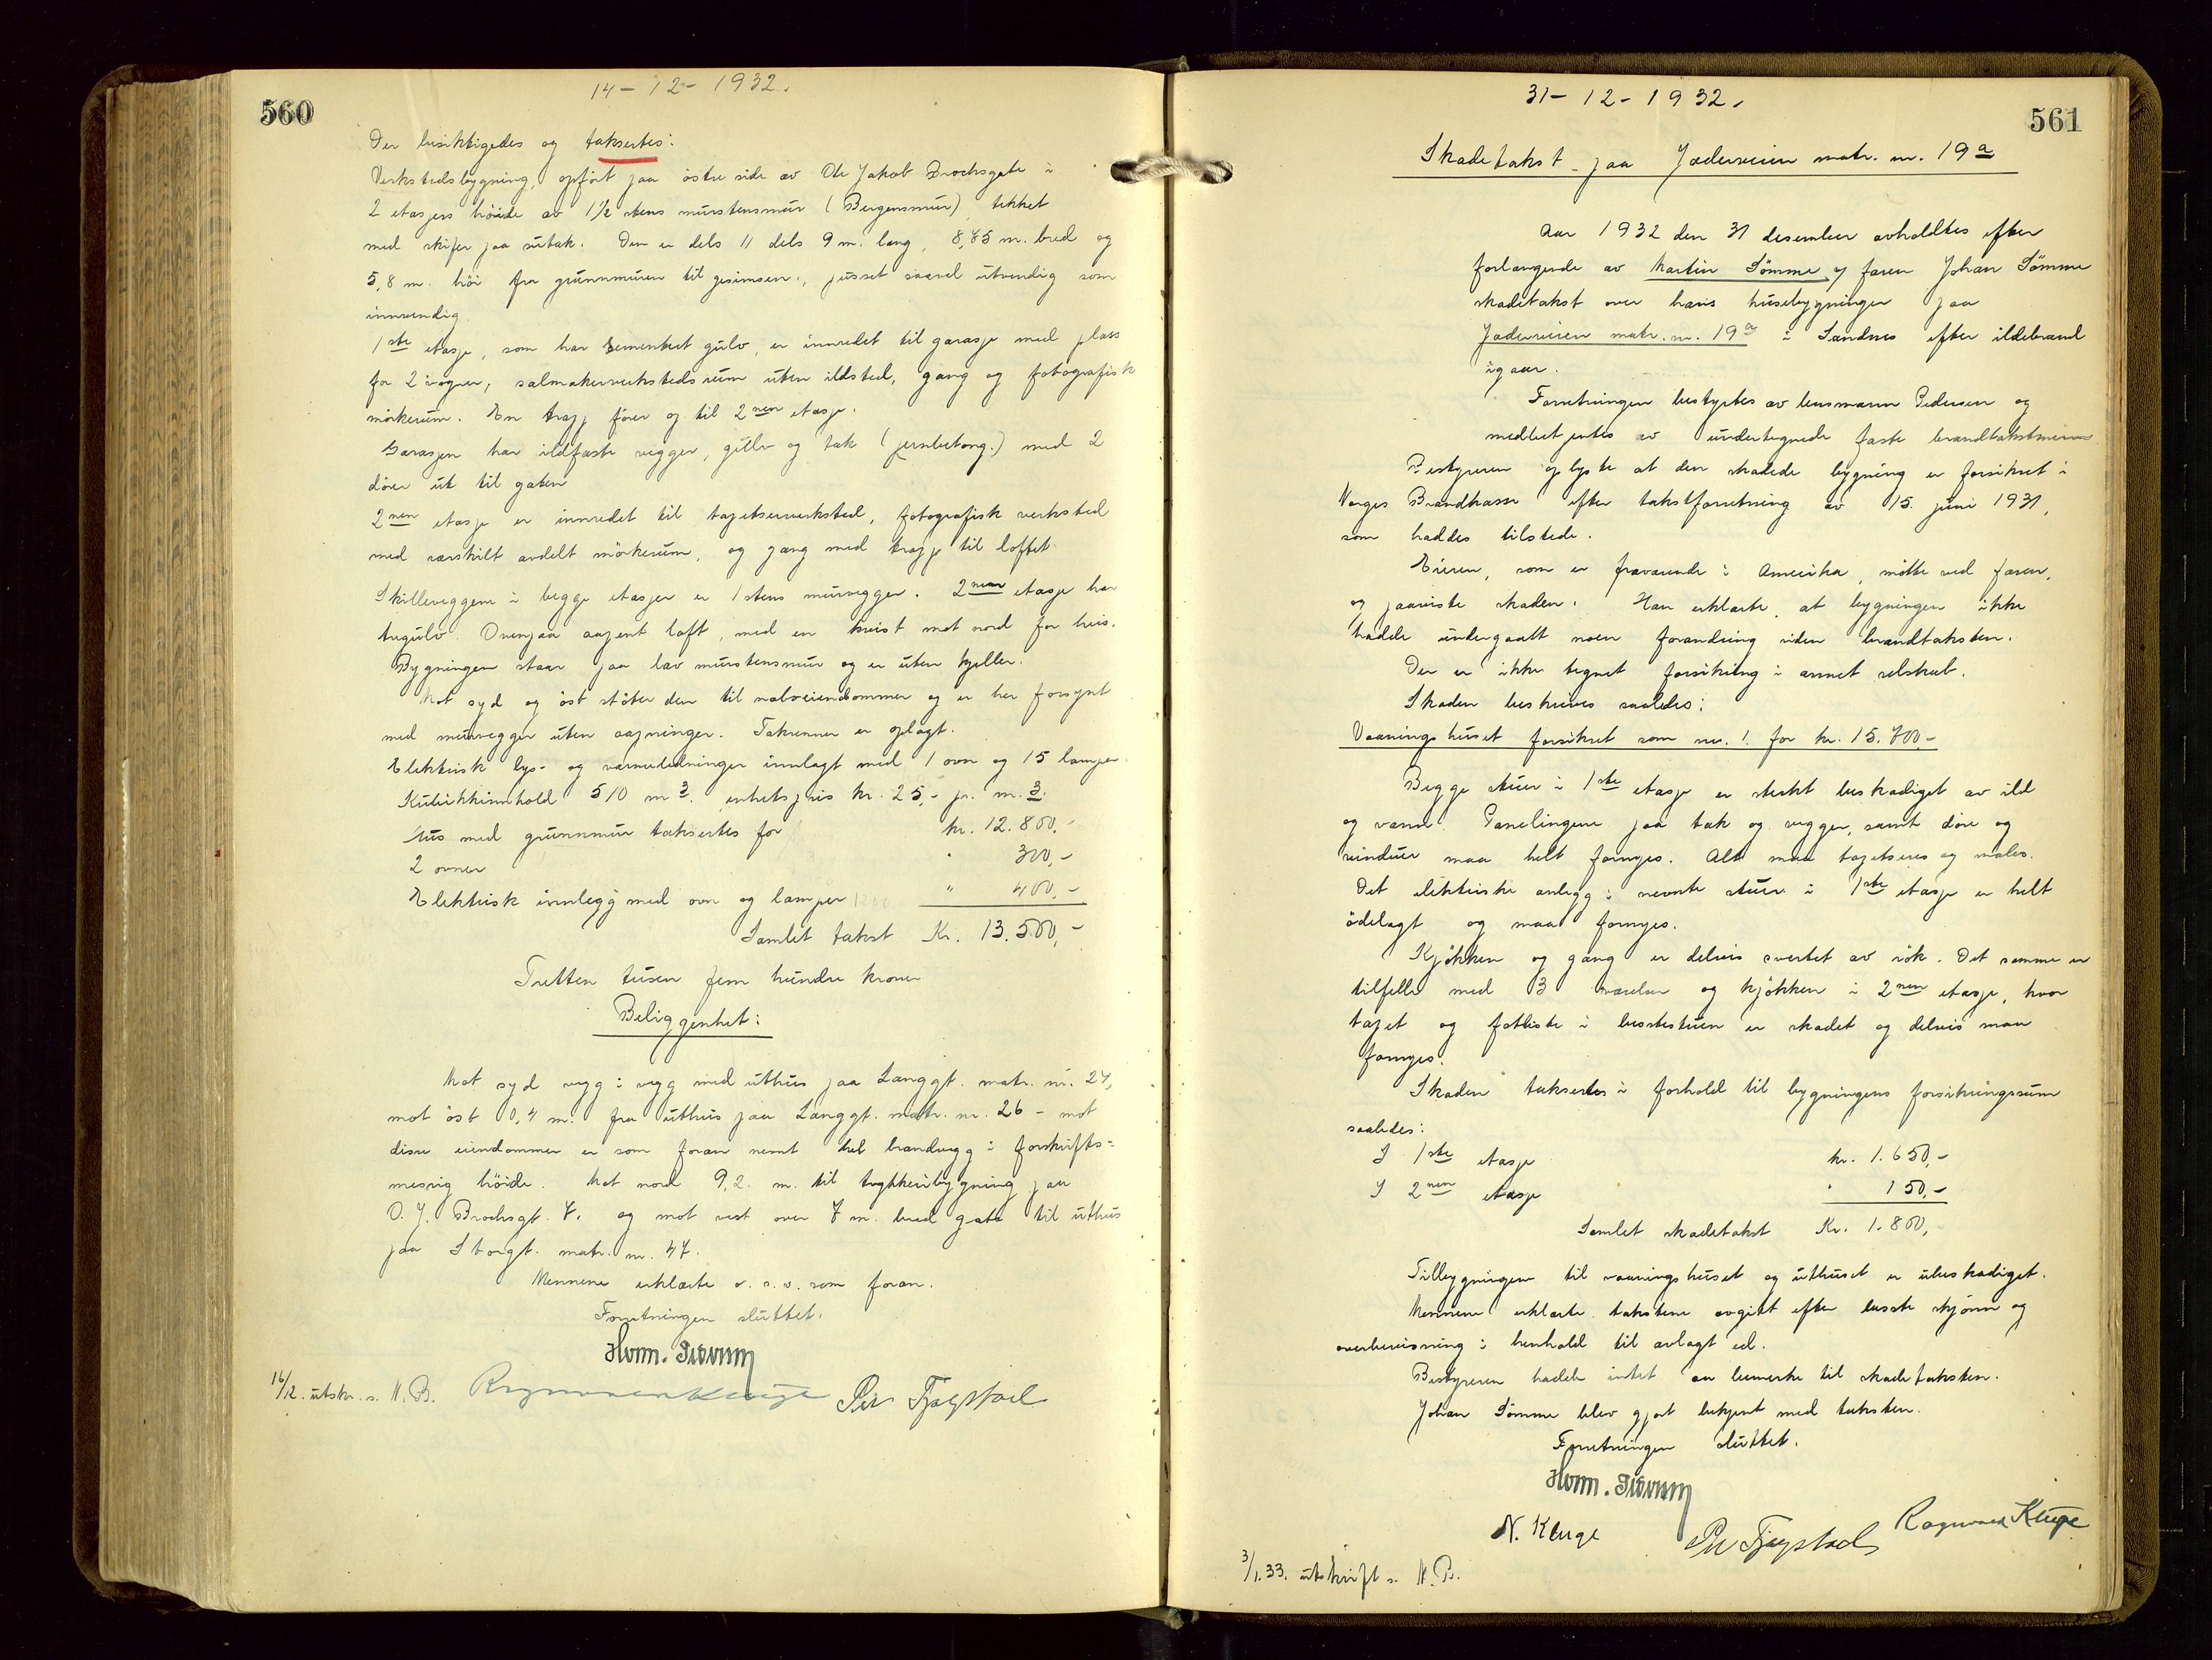 560
14 - 12 - 1932.
Der besiktigedes og taksertes:
Verkstedsbygning, opfört paa östre side av Ole Jakob Brochsgate i
2 etasjers höide av 1½ stens murstensmur (Bergensmur) tekket
med skifer paa sutak. Den er dels 11 dels 9 m. lang, 8,85 m. bred og
5,8 m. höi fra grunnmuren til gesimsen, pusset saavel utvendig som
innvendig.
1ste etasje, som har sementert gulv, er innredet til garasje med plass
for 2 vogner, salmakerverkstedsrum uten ildsted, gang og fotografisk
mörkerum. En trapp förer op til 2nen etasje.
Garasjen har ildfaste vegger, gulv og tak (jernbetong.) med 2
dörer ut til gaten
2nen etasje er innredet til tapetserverksted, fotografisk verksted
med særskilt avdelt mörkerum, og gang med trapp til loftet.
Skilleveggene i begge etasjer er 1 stens murvegger. 2nen etasje har
tregulv. Ovenpaa aapent loft, med en kvist mot nord for heis.
Bygningen staar paa lav murstensmur og er uten kjeller.
Mot syd og öst stöter den til naboeiendommer og er her forsynt
med murvegger uten aapninger. Takrenner er oplagt.
Elektrisk lys- og varmeledninger innlagt med 1 ovn og 15 lamper.
Kubikkinnhold 510 m3. enhetspris kr. 25,- pr. m.3.
Hus med grunnmur taksertes for kr. 12.800,-
2 ovner " 300,-
Elektrisk innlegg med ovn og lamper " 400,-
Samlet takst Kr. 13.500,-
Tretten tusen fem hundre kroner
Beliggenhet:
Mot syd vegg i vegg med uthus paa Langgt. matr. nr. 24,
mot öst 0,4 m. fra uthus paa Langgt. matr. nr. 26 - mot
disse eiendommer er som foran nevnt hel brandvegg i forskrifts-
messig höide. Mot nord 9,2. m. til trykkeribygning paa
O. J. Brochsgt. 7. og mot vest over 7 m. bred gate til uthus
paa Storgt. matr. nr. 47.
Mennene erklærte o. s. v. som foran.
Forretningen sluttet.
16/12. utskr. s. N. B. Ragnvald Kluge Per Fjogstad
561
31 - 12 - 1932.
Skadetakst paa Jæderveien matr. nr. 19a
Aar 1932 den 31 desember avholdtes efter
forlangende av Martin Sömme v/ faren Johan Sömme
skadetakst over hans husebygninger paa
Jæderveien matr. nr. 19a i Sandnes efter ildebrand
igaar.
Forretningen bestyrtes av lensmann Pedersen og
medbetjentes av undertegnede faste brandtakstmenn
Bestyreren oplyste at den skadede bygning er forsikret i
Norges Brandkasse efter takstforretning av 15. juni 1931,
som haddes tilstede.
Eieren, som er fraværende i Amerika, mötte ved faren,
og paaviste skaden. Han erklærte, at bygningen ikke
hadde undergaatt noen forandring siden brandtaksten.
Der er ikke tegnet forsikring i annet selskab.
Skaden beskrives saaledes:
Vaaningshuset forsikret som nr. 1. for kr. 15.700,-
Begge stuer i 1ste etasje er sterkt beskadiget av ild
og vann. Panelingene paa tak og vegger, samt döre og
vinduer maa helt fornyes. Alt maa tapetseres og males.
Det elektriske anlegg i nevnte stuer i 1ste etasje er helt
ödelagt og maa fornyes.
Kjökken og gang er delvis svertet av rök. Det samme er
tilfelle med 3 værelser og kjökken i 2nen etasje, hvor
tapet og fotliste i bestestuen er skadet og delvis maa
fornyes.
Skaden taksertes i forhold til bygningens forsikringssum
saaledes:
I 1ste etasje kr. 1.650,-
I 2nen etasje " 150,-
Samlet skadetakst Kr. 1.800,-
Tilbygningen til vaaningshuset og uthuset er ubeskadiget.
Mennene erklærte takstene avgitt efter beste skjönn og
overbevisning i henhold til avlagt ed.
Bestyreren hadde intet an bemerke til skadetaksten.
Johan Sömme blev gjort bekjent med taksten.
Forretningen sluttet.
N. Kluge Per Fjogstad Ragnvald Kluge
3/1.33. utskrift s. N. B.